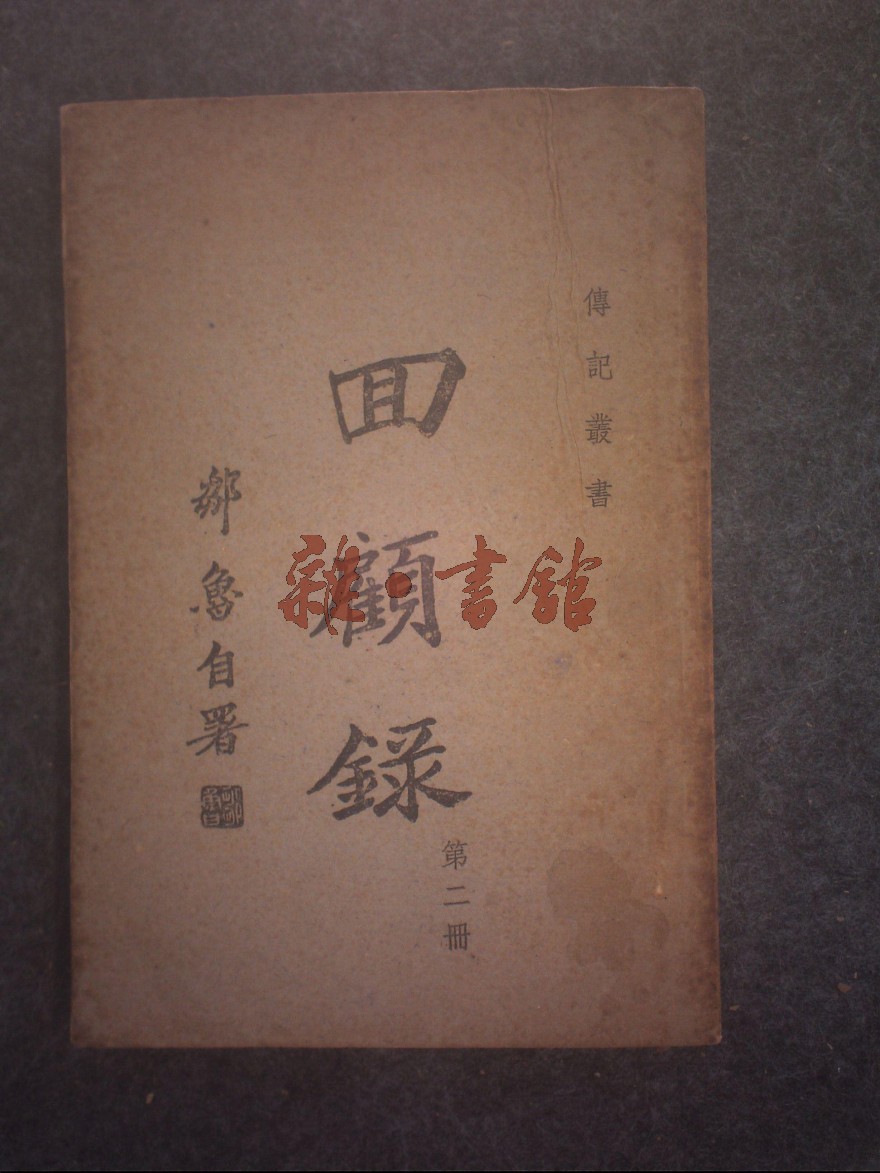 傳記叢書
回顧錄
第二冊
鄒魯自署
鄒魯
雜•書館